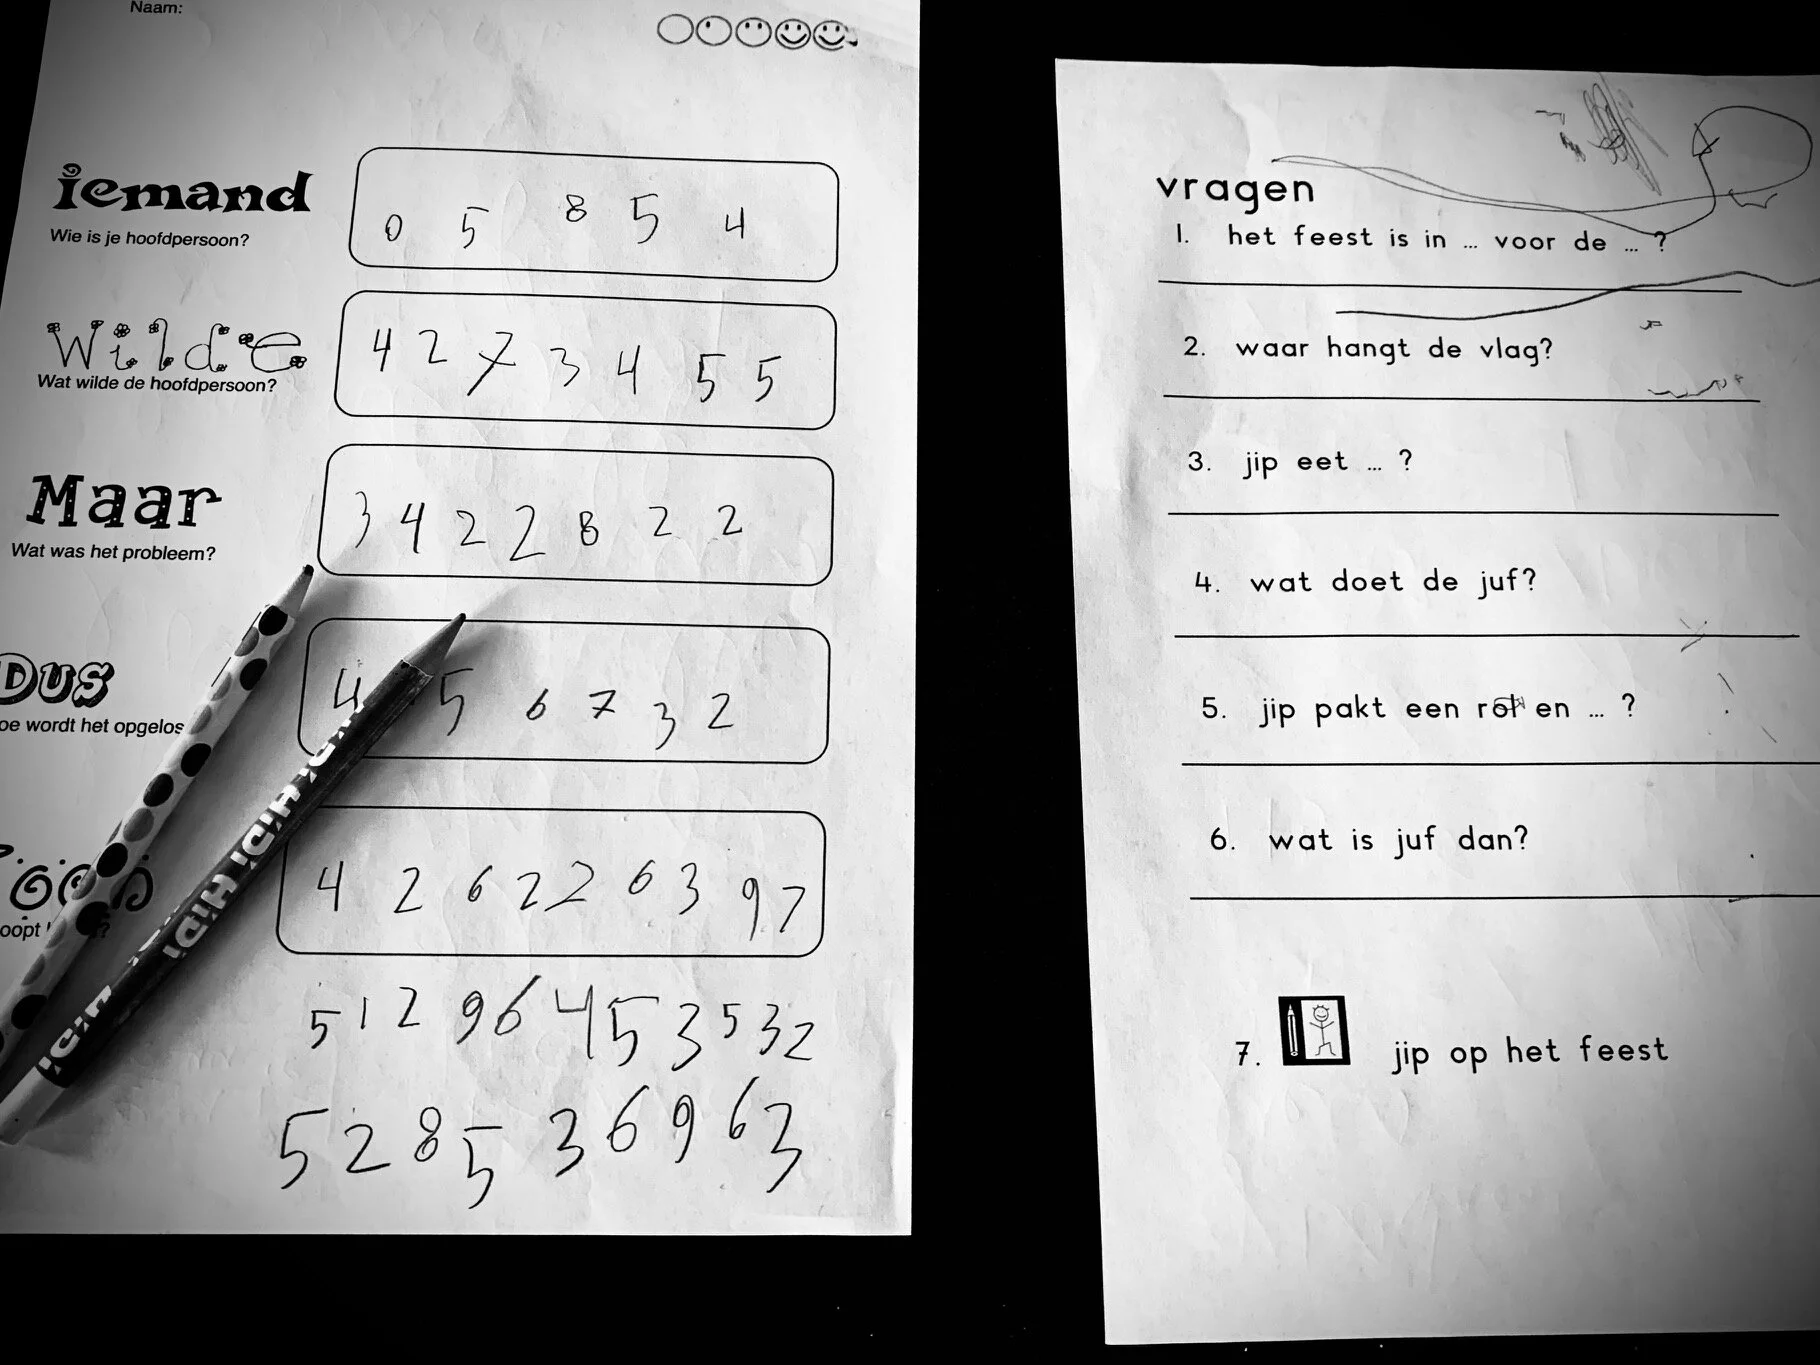 Naam:
iemand
Wie is je hoofdpersoon?
0 5 8 5 4
Wilde
Wat wilde de hoofdpersoon?
4 2 7 3 4 5 5
Maar
Wat was het probleem?
3 4 2 2 8 2 2
Dus
oe wordt het opgelos
4 5 6 7 3 2
Toen
oopt
4 2 6 2 2 6 3 9 7
5 1 2 9 6 4 5 3 5 3 2
5 2 8 5 3 6 9 6 3
HIDI HIDI
vragen
1. het feest is in ... voor de ... ?
2. waar hangt de vlag?
3. jip eet ... ?
4. wat doet de juf?
5. jip pakt een rol en ... ?
6. wat is juf dan?
7. jip op het feest